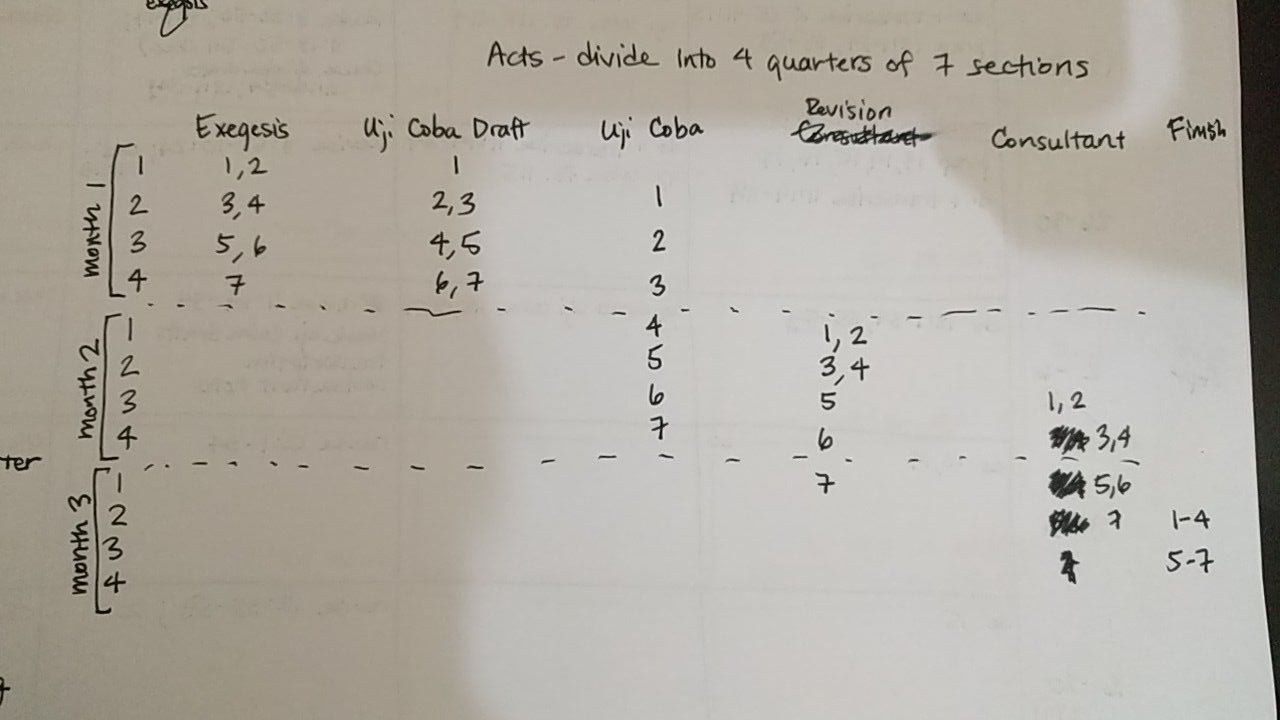 exegesis
Acts - divide into 4 quarters of 7 sections
Exegesis Uji Coba Draft Uji Coba Revision Consultant Finish
month 1
1 1,2 1
2 3,4 2,3 1
3 5,6 4,5 2
4 7 6,7 3
month 2
1 4 1,2
2 5 3,4
3 6 5 1,2
4 7 6 3,4
ter
month 3
1 7 5,6
2 7 1-4
3 5-7
4